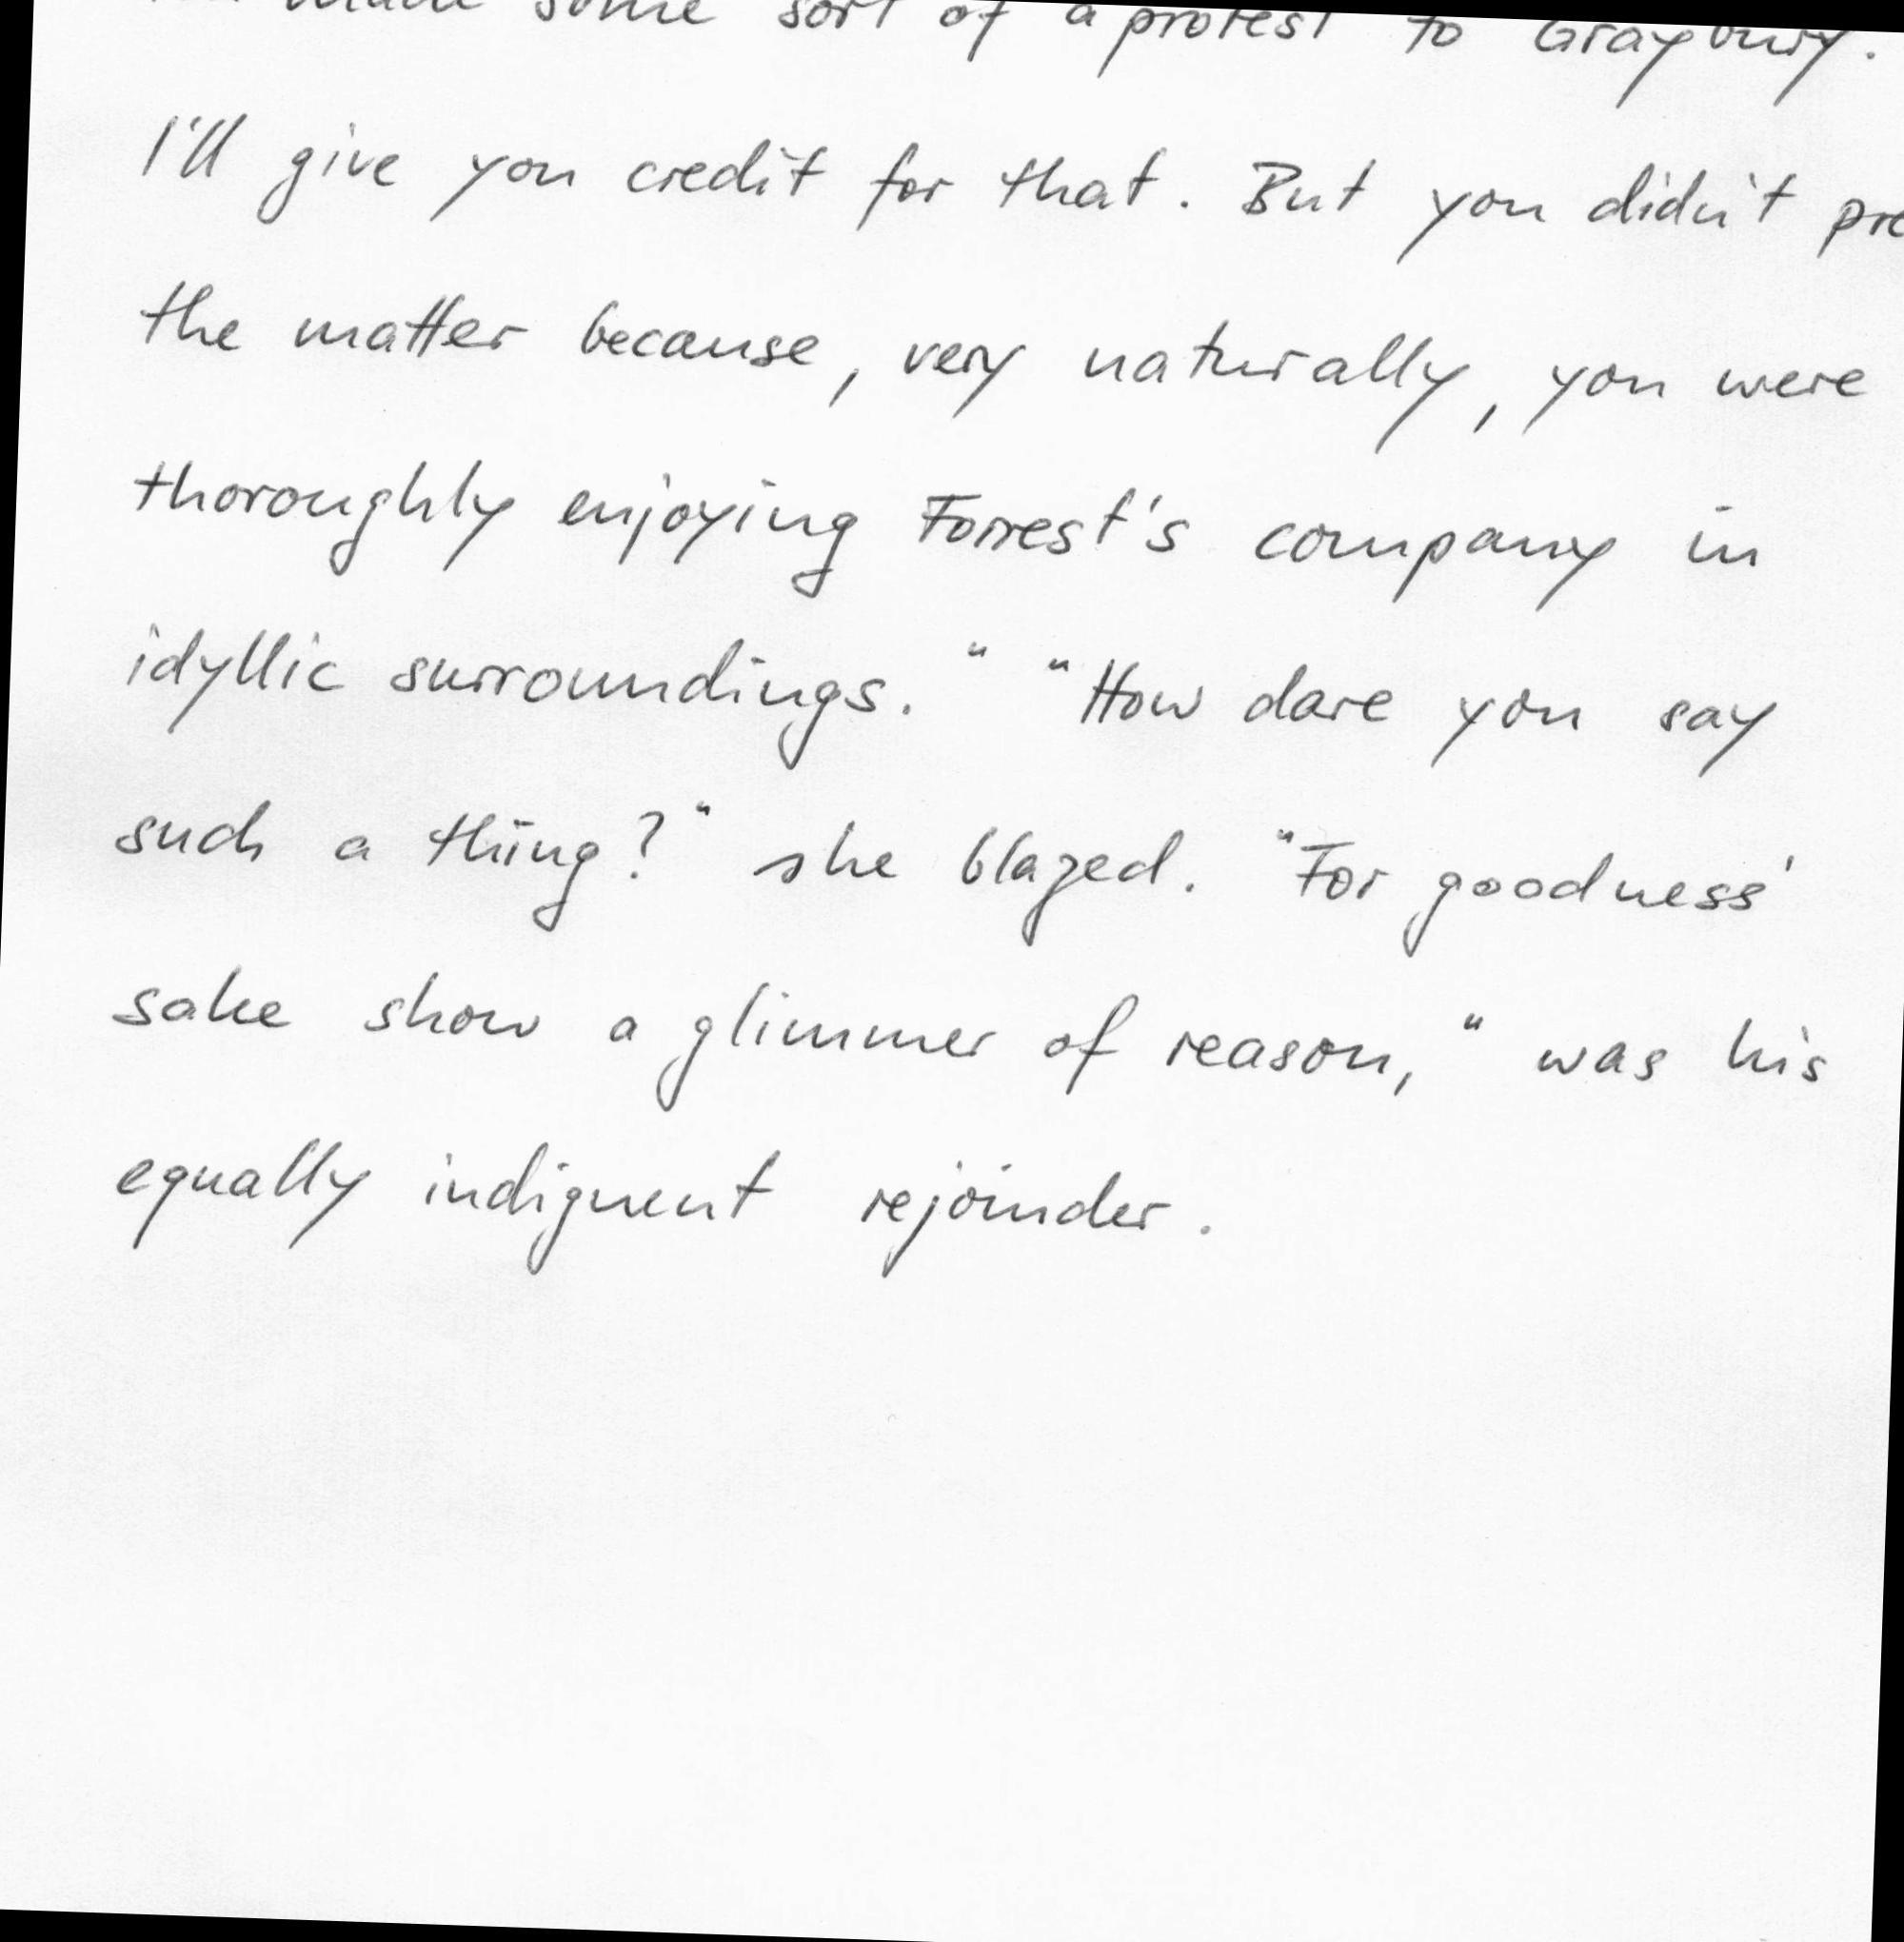 made some sort of a protest to Graybury.
I'll give you credit for that. But you didn't
the matter because, very naturally, you were
thoroughly enjoying Forrest's company in
idyllic surroundings." "How dare you say
such a thing?" she blazed. "For goodness'
sake show a glimmer of reason," was his
equally indignent rejoinder.